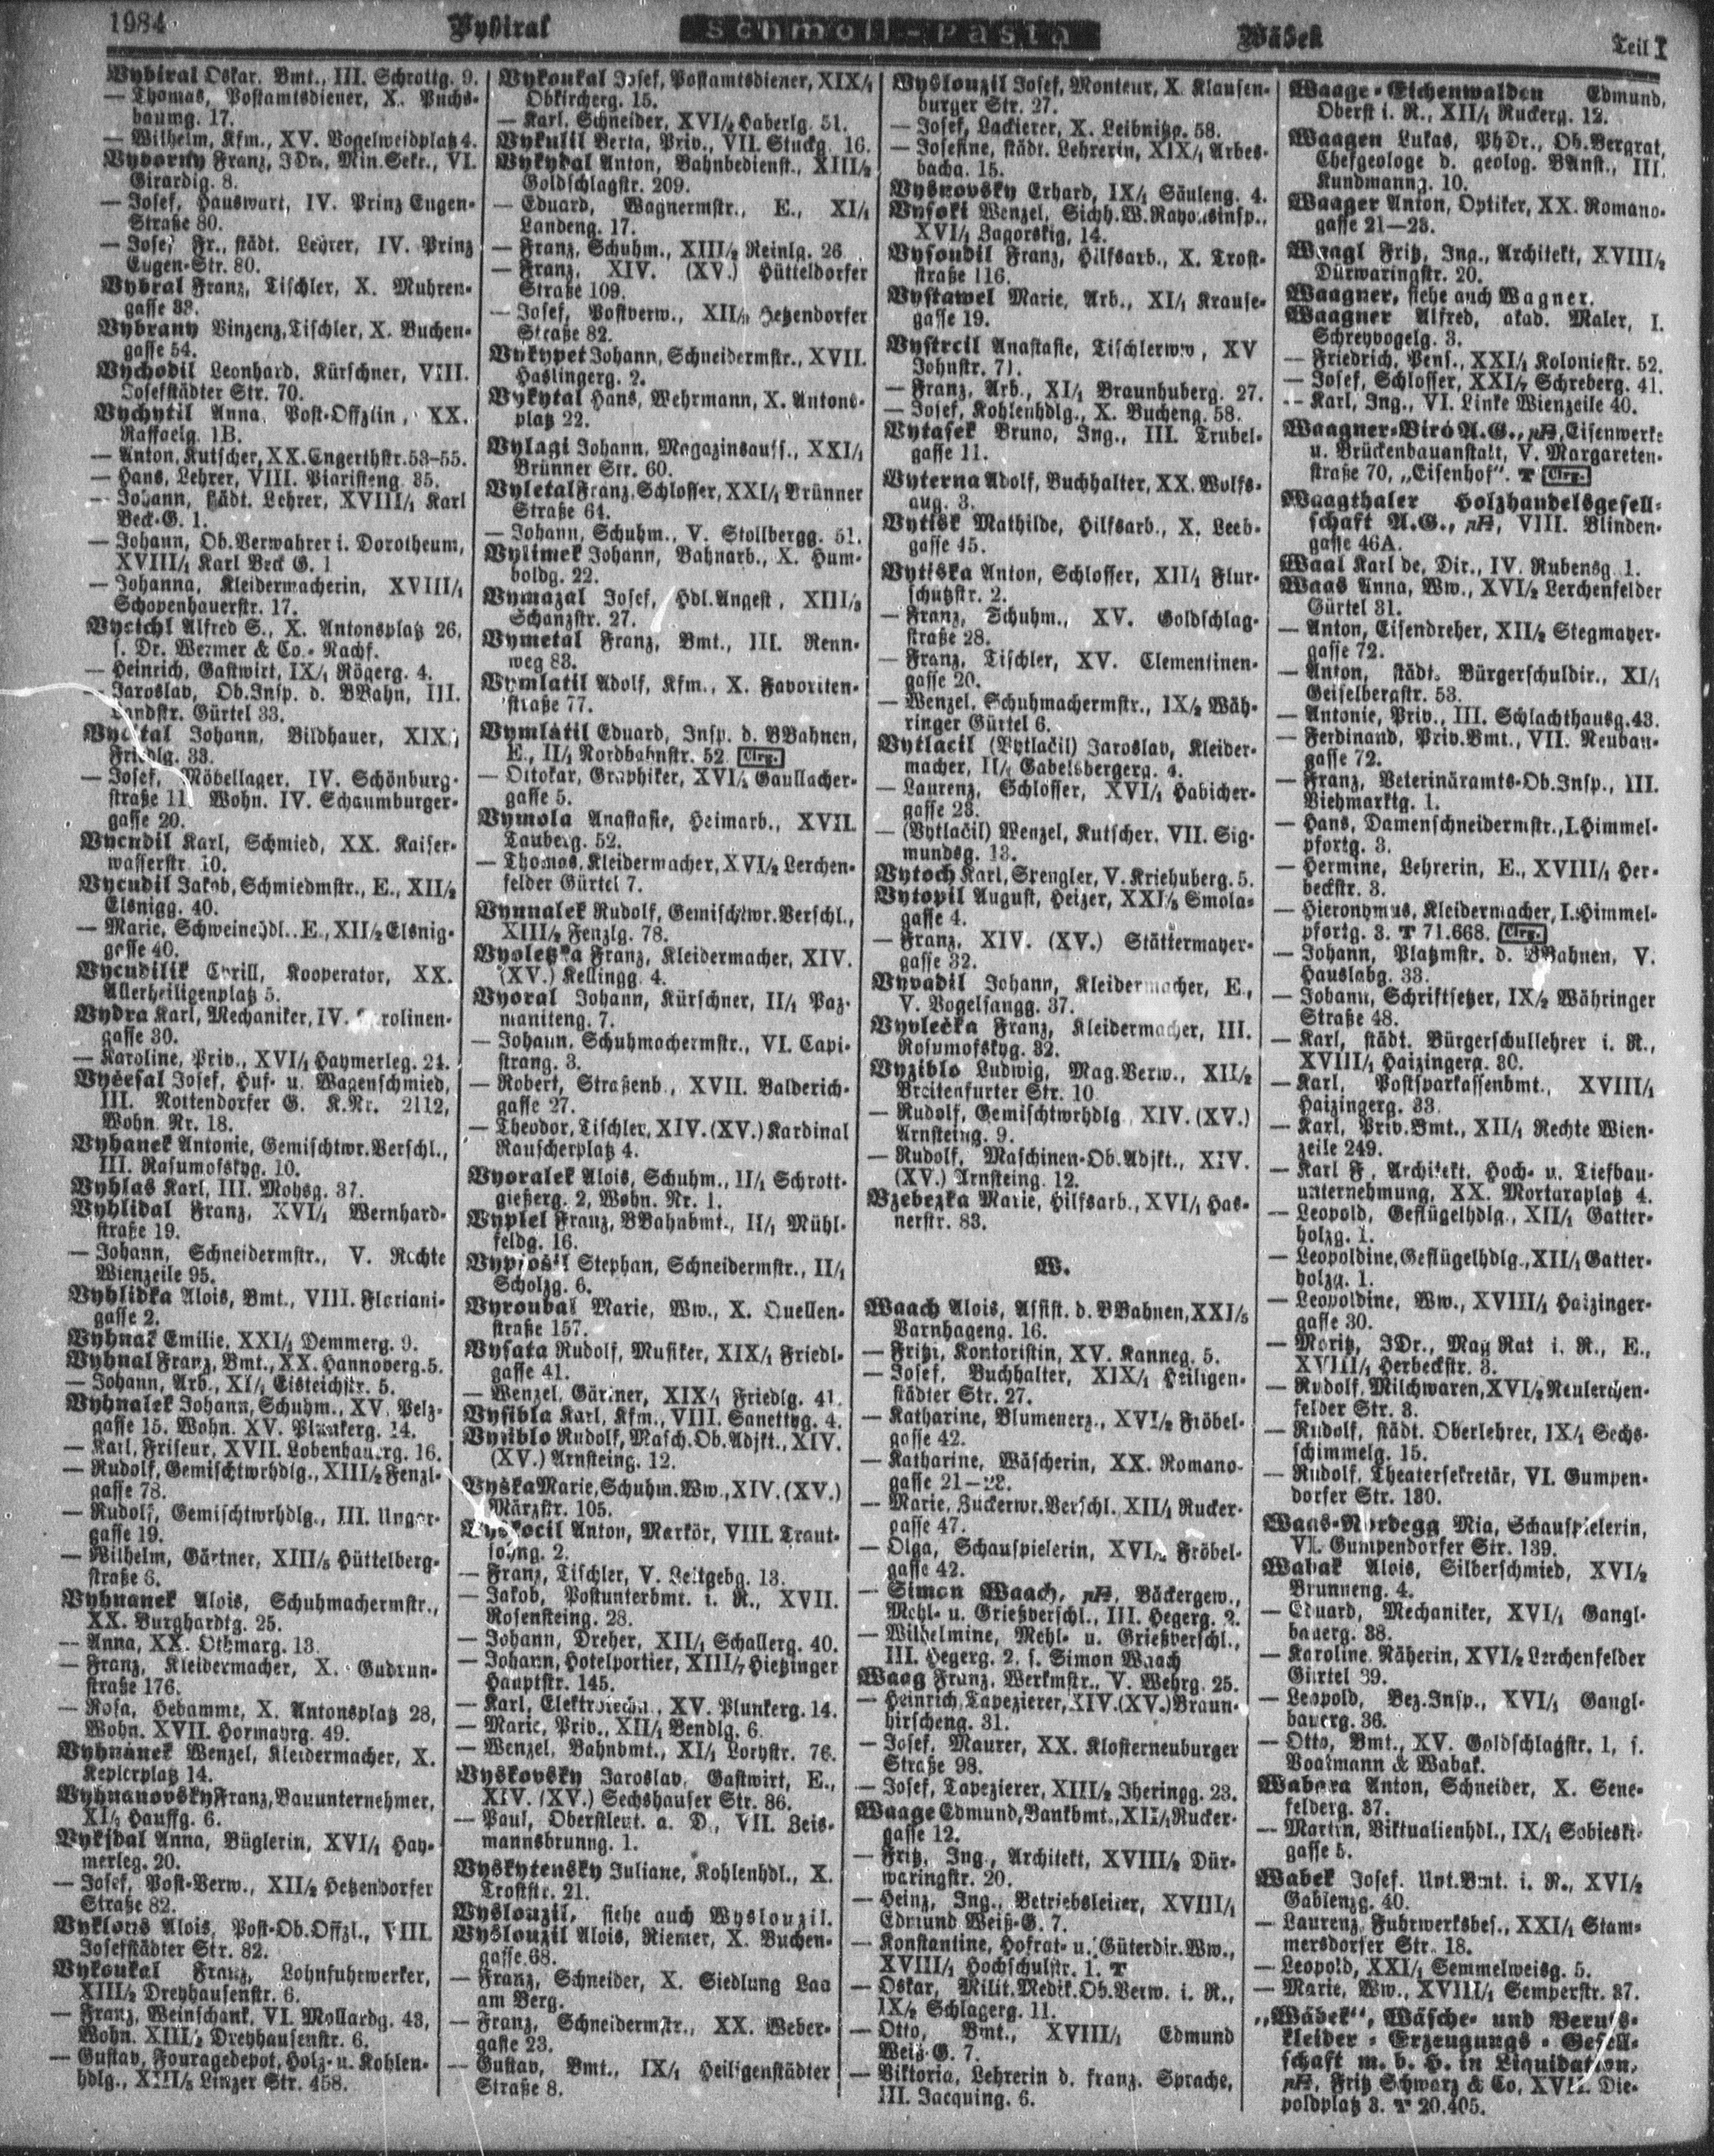 1984
Vybiral
Schmoll-Pasta
Wabek
Teil I
Vybiral Oskar, Bmt., III. Schrottg. 9.
— Thomas, Postamtsdiener, X. Puchs-
baumg. 17.
— Wilhelm, Kfm., XV. Vogelweidplatz 4.
Vyborny Franz, JDr., Min.Sekr., VI.
Girardig. 8.
— Josef, Hauswart, IV. Prinz Eugen-
Straße 80.
— Josef Fr., städt. Lehrer, IV. Prinz
Eugen-Str. 80.
Vybral Franz, Tischler, X. Muhren-
gasse 33.
Vybrany Vinzenz, Tischler, X. Buchen-
gasse 54.
Vychodil Leonhard, Kürschner, VIII.
Josefstädter Str. 70.
Vychytil Anna, Post-Offzlin, XX.
Raffaelg. 1B.
— Anton, Kutscher, XX. Engerthstr. 53—55.
— Hans, Lehrer, VIII. Piaristeng. 35.
— Johann, städt. Lehrer, XVIII/1 Karl
Beck-G. 1.
— Johann, Ob.Verwahrer i. Dorotheum,
XVIII/1 Karl Beck G. 1
— Johanna, Kleidermacherin, XVIII/1
Schopenhauerstr. 17.
Alfred S., X. Antonsplatz 26,
s. Dr. Wermer & Co.- Nachf.
— Heinrich, Gastwirt, IX/1 Rögerg. 4.
— Jaroslav, Ob.Insp. d. BBahn, III.
Landstr. Gürtel 33.
Johann, Bildhauer, XIX/1
Friedlg. 33.
— Josef, Möbellager, IV. Schönburg-
straße 11. Wohn. IV. Schaumburger-
gasse 20.
Vycudil Karl, Schmied, XX. Kaiser-
wasserstr. 10.
Vycudil Jakob, Schmiedmstr., E., XII/2
Elsnigg. 40.
— Marie, Schweinehdl., E., XII/2 Elsnig-
gasse 40.
Vycudilik Cyrill, Kooperator, XX.
Allerheiligenplatz 5.
Vydra Karl, Mechaniker, IV. Karolinen-
gasse 30.
— Karoline, Priv., XVI/1 Haymerleg. 24.
Vyčesal Josef, Huf- u. Wagenschmied,
III. Rottendorfer G. K.Nr. 2112,
Wohn. Nr. 18.
Vyhanek Antonie, Gemischtwr.Verschl.,
III. Rasumofskyg. 10.
Vyhlas Karl, III. Mohsg. 37.
Vyhlidal Franz, XVI/1 Wernhard-
straße 19.
— Johann, Schneidermstr., V. Rechte
Wienzeile 95.
Vyhlidka Alois, Bmt., VIII. Floriani-
gasse 2.
Vyhnak Emilie, XXI/1 Demmerg. 9.
Vyhnal Franz, Bmt., XX. Hannoverg. 5.
— Johann, Arb., XI/1 Eisteichstr. 5.
Vyhnalek Johann, Schuhm., XV. Pelz-
gasse 15. Wohn. XV. Plunkerg. 14.
— Karl, Friseur, XVII. Lobenhauerg. 16.
— Rudolf, Gemischtwrhdlg., XIII/2 Fenzl-
gasse 78.
— Rudolf, Gemischtwrhdlg., III. Ungar-
gasse 19.
— Wilhelm, Gärtner, XIII/5 Hüttelberg-
straße 6.
Vyhnanek Alois, Schuhmachermstr.,
XX. Burghardtg. 25.
— Anna, XX. Othmarg. 13.
— Franz, Kleidermacher, X. Gudrun-
straße 176.
— Rosa, Hebamme, X. Antonsplatz 28,
Wohn. XVII. Hormayrg. 49.
Vyhnánek Wenzel, Kleidermacher, X.
Keplerplatz 14.
Vyhnanovsky Franz, Bauunternehmer,
XI/2 Hauffg. 6.
Vykidal Anna, Büglerin, XVI/1 Hay-
merleg. 20.
— Josef, Post-Verw., XII/2 Hetzendorfer
Straße 82.
Alois, Post-Ob.Offzl., VIII.
Josefstädter Str. 82.
Vykoukal Franz, Lohnfuhrwerker,
XIII/2 Dreyhausenstr. 6.
— Franz, Weinschank, VI. Mollardg. 43,
Wohn. XIII/2 Dreyhausenstr. 6.
— Gustav, Fouragedepot, Holz- u. Kohlen-
hdlg., XIII/5 Linzer Str. 458.
Vykoukal Josef, Postamtsdiener, XIX/1
Obkircherg. 15.
— Karl, Schneider, XVI/2 Haberlg. 51.
Vykulil Berta, Priv., VII. Stuckg. 16.
Vykydal Anton, Bahnbedienst., XIII/2
Goldschlagstr. 209.
— Eduard, Wagnermstr., E., XI/1
Landeng. 17.
— Franz, Schuhm., XIII/2 Reinlg. 26
— Franz, XIV. (XV.) Hütteldorfer
Straße 109.
— Josef, Postverw., XII/2 Hetzendorfer
Straße 82.
Vykypet Johann, Schneidermstr., XVII.
Haslingerg. 2.
Vykytal Hans, Wehrmann, X. Antons-
platz 22.
Vylagi Johann, Magazinsauff., XXI/1
Brünner Str. 60.
Vyletal Franz, Schlosser, XXI/1 Brünner
Straße 64.
— Johann, Schuhm., V. Stollbergg. 51.
Vylimek Johann, Bahnarb., X. Hum-
boldg. 22.
Vymazal Josef, Hdl.Angest., XIII/3
Schanzstr. 27.
Vymetal Franz, Bmt., III. Renn-
weg 83.
Vymlatil Adolf, Kfm., X. Favoriten-
straße 77.
Vymlátil Eduard, Insp. d. BBahnen,
E., II/1 Nordbahnstr. 52 Clrg.
— Ottokar, Graphiker, XVI/2 Gaullacher-
gasse 5.
Vymola Anastasie, Heimarb., XVII.
Tauberg. 52.
— Thomas, Kleidermacher, XVI/2 Lerchen-
felder Gürtel 7.
Vynnalek Rudolf, Gemischtwr.Verschl.,
XIII/2 Fenzlg. 78.
Vyoletzka Franz, Kleidermacher, XIV.
(XV.) Kellingg. 4.
Vyoral Johann, Kürschner, II/1 Paz-
maniteng. 7.
— Johann, Schuhmachermstr., VI. Capi-
strang. 3.
— Robert, Straßenb., XVII. Balderich-
gasse 27.
— Theodor, Tischler, XIV. (XV.) Kardinal
Rauscherplatz 4.
Vyoralek Alois, Schuhm., II/1 Schrott-
gießerg. 2, Wohn. Nr. 1.
Vyplel Franz, BBahnbmt., II/1 Mühl-
feldg. 16.
Stephan, Schneidermstr., II/1
Scholzg. 6.
Vyroubal Marie, Ww., X. Quellen-
straße 157.
Vysata Rudolf, Musiker, XIX/1 Friedl-
gasse 41.
— Wenzel, Gärtner, XIX/1 Friedlg. 41.
Vysibla Karl, Kfm., VIII. Sanettyg. 4.
Rudolf, Masch.Ob.Adjkt., XIV.
(XV.) Arnsteing. 12.
Vyska Marie, Schuhm.Ww., XIV. (XV.)
Märzstr. 105.
Vyskocil Anton, Markör, VIII. Traut-
sohng. 2.
— Franz, Tischler, V. Leitgebg. 13.
— Jakob, Postunterbmt. i. R., XVII.
Rosensteing. 28.
— Johann, Dreher, XII/1 Schallerg. 40.
— Johann, Hotelportier, XIII/7 Hietzinger
Hauptstr. 145.
— Karl, XV. Plunkerg. 14.
— Marie, Priv., XII/1 Bendlg. 6.
— Wenzel, Bahnbmt., XI/1 Lorystr. 76.
Vyskovsky Jaroslav, Gastwirt, E.,
XIV. (XV.) Sechshauser Str. 86.
— Paul, Oberstleut. a. D., VII. Zeis-
mannsbrunng. 1.
Vyskytensky Juliane, Kohlenhdl., X.
Troststr. 21.
Vyslouzil, siehe auch Wyslouzil.
Vyslouzil Alois, Riemer, X. Buchen-
gasse 68.
— Franz, Schneider, X. Siedlung Laa
am Berg.
— Franz, Schneidermstr., XX. Weber-
gasse 23.
— Gustav, Bmt., IX/1 Heiligenstädter
Straße 8.
Vyslouzil Josef, Monteur, X. Klausen-
burger Str. 27.
— Josef, Lackierer, X. Leibnitzg. 58.
— Josefine, städt. Lehrerin, XIX/1 Arbes-
bachg. 15.
Vysnovsky Erhard, IX/1 Säuleng. 4.
Vysoki Wenzel, Sichh.W.Rayonsinsp.,
XVI/1 Zagorskig. 14.
Vysoudil Franz, Hilfsarb., X. Trost-
straße 116.
Vystawel Marie, Arb., XI/1 Krause-
gasse 19.
Vystrcil Anastasie, Tischlerww., XV
Johnstr. 71.
— Franz, Arb., XI/1 Braunhuberg. 27.
— Josef, Kohlenhdlg., X. Bucheng. 58.
Vytasek Bruno, Ing., III. Trubel-
gasse 11.
Vyterna Adolf, Buchhalter, XX. Wolfs-
aug. 3.
Vytisk Mathilde, Hilfsarb., X. Leeb-
gasse 45.
Vytiska Anton, Schlosser, XII/1 Flur-
schützstr. 2.
— Franz, Schuhm., XV. Goldschlag-
straße 28.
— Franz, Tischler, XV. Clementinen-
gasse 20.
— Wenzel, Schuhmachermstr., IX/2 Wäh-
ringer Gürtel 6.
Vytlacil (Vytlačil) Jaroslav, Kleider-
macher, II/1 Gabelsbergerg. 4.
— Laurenz, Schlosser, XVI/1 Habicher-
gasse 23.
— (Vytlačil) Wenzel, Kutscher, VII. Sig-
mundsg. 13.
Vytoch Karl, Spengler, V. Kriehuberg. 5.
Vytopil August, Heizer, XXI/3 Smola-
gasse 4.
— Franz, XIV. (XV.) Stättermayer-
gasse 32.
Vyvadil Johann, Kleidermacher, E.,
V. Vogelsangg. 37.
Vyvlečka Franz, Kleidermacher, III.
Rosumofskyg. 32.
Vyziblo Ludwig, Mag.Verw., XII/2
Breitenfurter Str. 10
— Rudolf, Gemischtwrhdlg. XIV. (XV.)
Arnsteing. 9.
— Rudolf, Maschinen-Ob.Adjkt., XIV.
(XV.) Arnsteing. 12.
Vzebezka Marie, Hilfsarb., XVI/1 Has-
nerstr. 83.
W.
Waach Alois, Assist. d. BBahnen, XXI/5
Varnhageng. 16.
— Fritzi, Kontoristin, XV. Kanneg. 5.
— Josef, Buchhalter, XIX/1 Heiligen-
städter Str. 27.
— Katharine, Blumenerz., XVI/2 Fröbel-
gasse 42.
— Katharine, Wäscherin, XX. Romano-
gasse 21—23.
— Marie, Zuckerwr.Verschl. XII/1 Rucker-
gasse 47.
— Olga, Schauspielerin, XVI/2 Fröbel-
gasse 42.
— Simon Waach, Bäckergew.,
Mehl- u. Grießverschl., III. Hegerg. 2.
— Wilhelmine, Mehl- u. Grießverschl.,
III. Hegerg. 2. s. Simon Waach
Waag Franz, Werkmstr., V. Wehrg. 25.
— Heinrich, Tapezierer, XIV. (XV.) Braun-
hirscheng. 31.
— Josef, Maurer, XX. Klosterneuburger
Straße 98.
— Josef, Tapezierer, XIII/2 Iheringg. 23.
Waage Edmund, Bankbmt., XII/1 Rucker-
gasse 12.
— Fritz, Ing., Architekt, XVIII/2 Dür-
waringstr. 20.
— Heinz, Ing., Betriebsleiter, XVIII/1
Edmund Weiß-G. 7.
— Konstantine, Hofrat- u. Güterdir.Ww.,
XVIII/1 Hochschulstr. 1. T
— Oskar, Milit.Medik.Ob.Verw. i. R.,
IX/2 Schlagerg. 11.
— Otto, Bmt., XVIII/1 Edmund
Weiß-G. 7.
— Viktoria, Lehrerin d. franz. Sprache,
III. Jacquing. 6.
Waage-Eichenwalden Edmund,
Oberst i. R., XII/1 Ruckerg. 12.
Waagen Lukas, PhDr., Ob.Bergrat,
Chefgeologe d. geolog. BAnst., III.
Kundmanng. 10.
Waager Anton, Optiker, XX. Romano-
gasse 21—23.
Waagl Fritz, Ing., Architekt, XVIII/2
Dürwaringstr. 20.
Waagner, siehe auch Wagner.
Waagner Alfred, akad. Maler, I.
Schreyvogelg. 3.
— Friedrich, Pens., XXI/1 Koloniestr. 52.
— Josef, Schlosser, XXI/7 Schreberg. 41.
— Karl, Ing., VI. Linke Wienzeile 40.
Waagner-Biró A.G., Eisenwerke
u. Brückenbauanstalt, V. Margareten-
straße 70, „Eisenhof“. T Clrg.
Waagthaler Holzhandelsgesell-
schaft A.G., VIII. Blinden-
gasse 46A.
Waal Karl de, Dir., IV. Rubensg. 1.
Waas Anna, Ww., XVI/2 Lerchenfelder
Gürtel 31.
— Anton, Eisendreher, XII/2 Stegmayer-
gasse 72.
— Anton, städt. Bürgerschuldir., XI/1
Geiselbergstr. 53.
— Antonie, Priv., III. Schlachthausg. 43.
— Ferdinand, Priv.Bmt., VII. Neubau-
gasse 72.
— Franz, Veterinäramts-Ob.Insp., III.
Viehmarktg. 1.
— Hans, Damenschneidermstr., I. Himmel-
pfortg. 3.
— Hermine, Lehrerin, E., XVIII/1 Her-
beckstr. 3.
— Hieronymus, Kleidermacher, I. Himmel-
pfortg. 3. T 71.668. Clrg.
— Johann, Platzmstr. d. BBahnen, V.
Hauslabg. 33.
— Johann, Schriftsetzer, IX/2 Währinger
Straße 48.
— Karl, städt. Bürgerschullehrer i. R.,
XVIII/1 Haizingerg. 30.
— Karl, Postsparkassenbmt., XVIII/1
Haizingerg. 33.
— Karl, Priv.Bmt., XII/1 Rechte Wien-
zeile 249.
— Karl F., Architekt, Hoch- u. Tiefbau-
unternehmung, XX. Mortaraplatz 4.
— Leopold, Geflügelhdlg., XII/1 Gatter-
holzg. 1.
— Leopoldine, Geflügelhdlg., XII/1 Gatter-
holzg. 1.
— Leopoldine, Ww., XVIII/1 Haizinger-
gasse 30.
— Moritz, JDr., Mag Rat i. R., E.,
XVIII/1 Herbeckstr. 3.
— Rudolf, Milchwaren, XVI/2 Neulerchen-
felder Str. 8.
— Rudolf, städt. Oberlehrer, IX/1 Sechs-
schimmelg. 15.
— Rudolf, Theatersekretär, VI. Gumpen-
dorfer Str. 130.
Waas-Nordegg Mia, Schauspielerin,
VI. Gumpendorfer Str. 139.
Wabak Alois, Silberschmied, XVI/2
Brunneng. 4.
— Eduard, Mechaniker, XVI/1 Gangl-
bauerg. 38.
— Karoline, Näherin, XVI/2 Lerchenfelder
Gürtel 39.
— Leopold, Bez.Insp., XVI/1 Gangl-
bauerg. 36.
— Otto, Bmt., XV. Goldschlagstr. 1, s.
Wabak.
Wabara Anton, Schneider, X. Sene-
felderg. 37.
— Martin, Viktualienhdl., IX/1 Sobieski-
gasse 5.
Wabek Josef, Unt.Bmt. i. R., XVI/2
Gablenzg. 40.
— Laurenz, Fuhrwerksbes., XXI/1 Stam-
mersdorfer Str. 18.
— Leopold, XXI/1 Semmelweisg. 5.
— Marie, Ww., XVIII/1 Semperstr. 37.
„Wädek“, Wäsche- und Berufs-
kleider-Erzeugungs-Gesell-
schaft m. b. H. in Liquidation,
Fritz Schwarz & Co, XVII. Die-
poldplatz 3. T 20.405.